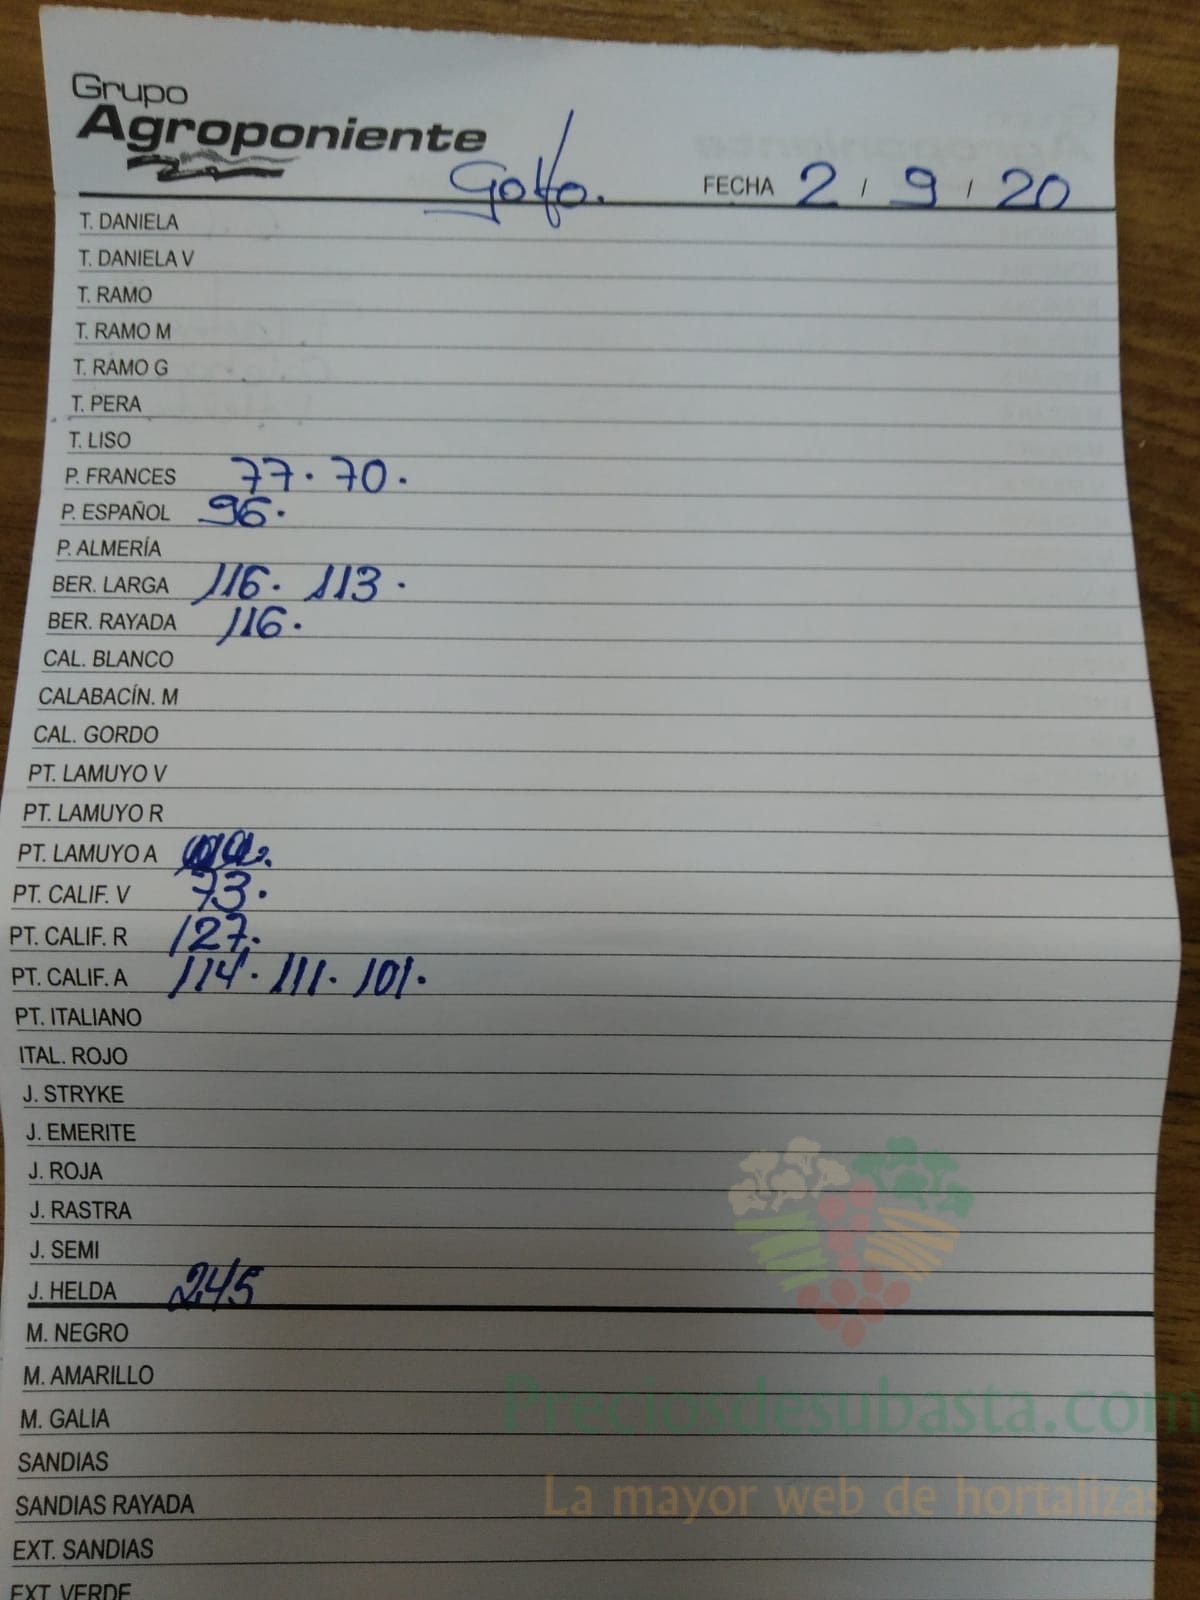 Grupo
Agroponiente
Golfo. FECHA 2 / 9 / 20
T. DANIELA
T. DANIELA V
T. RAMO
T. RAMO M
T. RAMO G
T. PERA
T. LISO
P. FRANCES 77. 70.
P. ESPAÑOL 96.
P. ALMERÍA
BER. LARGA 116. 113.
BER. RAYADA 116.
CAL. BLANCO
CALABACÍN. M
CAL. GORDO
PT. LAMUYO V
PT. LAMUYO R
PT. LAMUYO A
PT. CALIF. V 73.
PT. CALIF. R 127.
PT. CALIF. A 114. 111. 101.
PT. ITALIANO
ITAL. ROJO
J. STRYKE
J. EMERITE
J. ROJA
J. RASTRA
J. SEMI
J. HELDA 245
M. NEGRO
M. AMARILLO
M. GALIA
SANDIAS
SANDIAS RAYADA
EXT. SANDIAS
EXT. VERDE
Preciosdesubasta.com
La mayor web de hortalizas